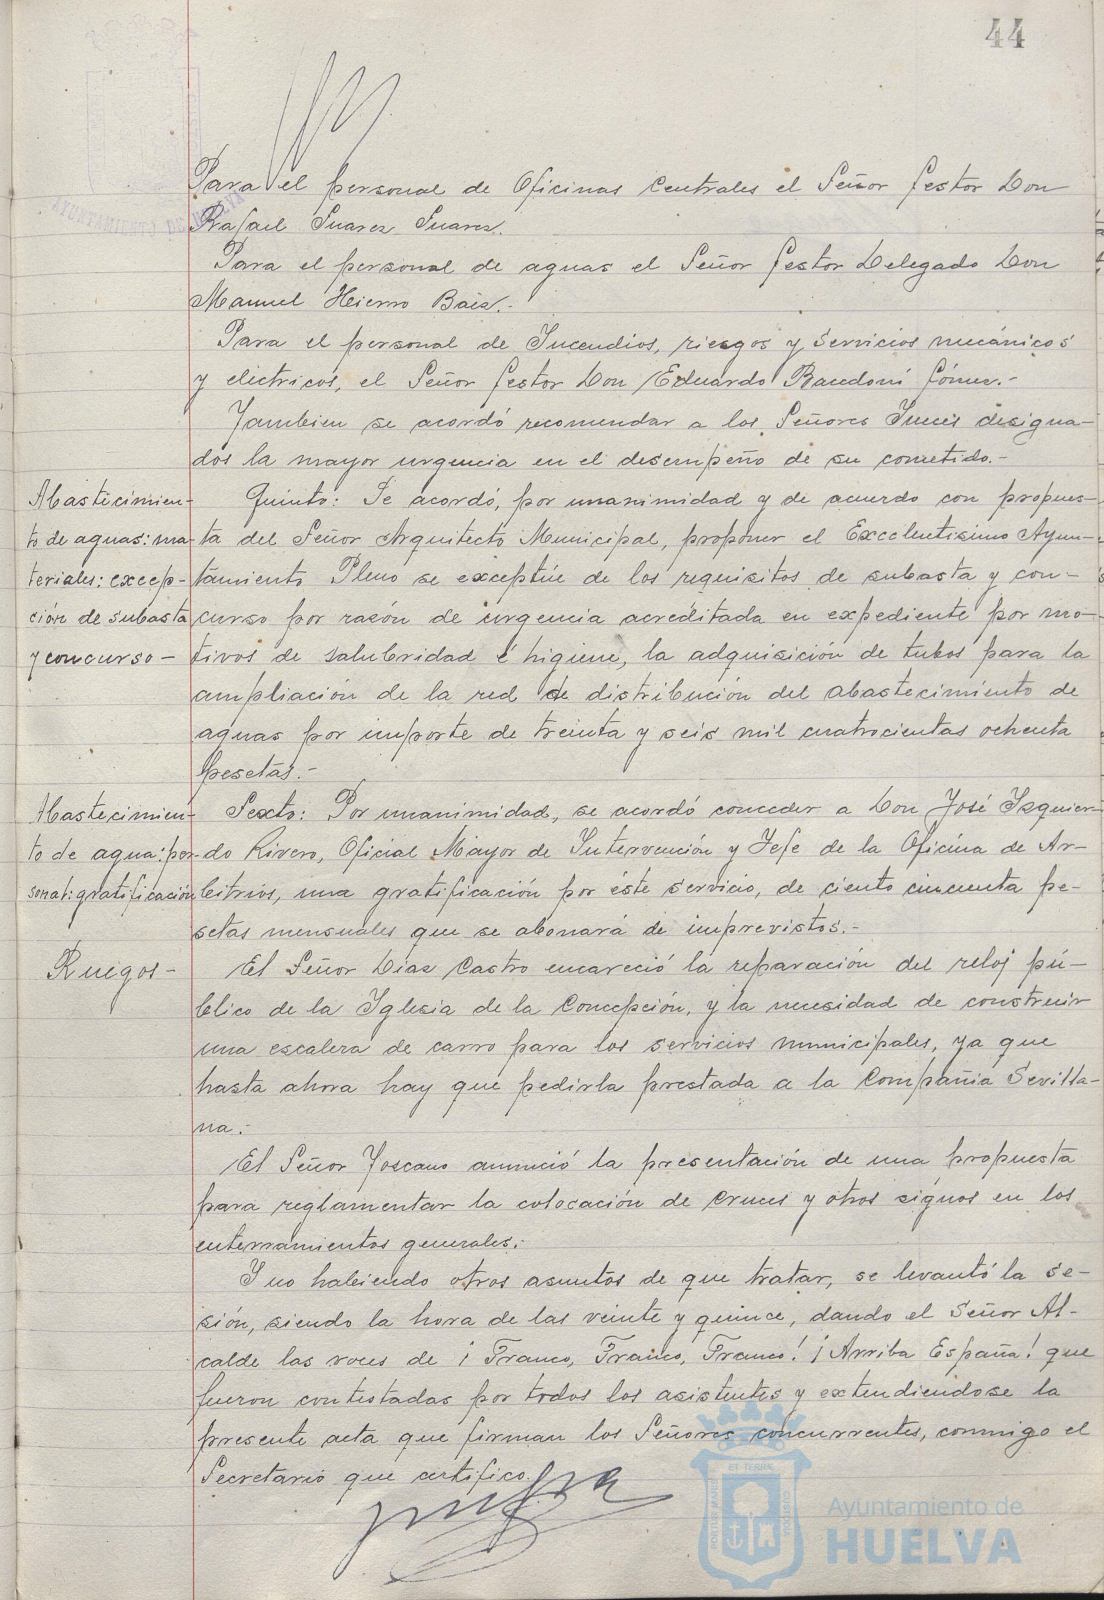 44
Para el personal de Oficinas Centrales el Señor Gestor Don
Rafael Suarez Suarez.
AYUNTAMIENTO DE HUELVA
Para el personal de aguas el Señor Gestor Delegado Don
Manuel Hierro Baéz.-
Para el personal de Incendios, riesgos y servicios mecánicos
y electricos, el Señor Gestor Don Eduardo Gómez.-
Tambien se acordó recomendar a los Señores Jueces designa-
dos la mayor urgencia en el desempeño de su cometido.-
Abastecimien-
to de aguas: ma-
teriales: excep-
ción de subasta
y concurso -
Quinto: Se acordó, por unanimidad y de acuerdo con propues-
ta del Señor Arquitecto Municipal, proponer el Excelentisimo Ayun-
tamiento Pleno se exceptúe de los requisitos de subasta y con-
curso por razón de urgencia acreditada en expediente por mo-
tivos de salubridad é higiene, la adquisición de tubos para la
ampliación de la red de distribución del abastecimiento de
aguas por importe de treinta y seis mil cuatrocientas ochenta
pesetas.-
Abastecimien-
to de agua: per-
sonal: gratificación
Sexto: Por unanimidad, se acordó conceder a Don José Izquier-
do Rivero, Oficial Mayor de Intervención y Jefe de la Oficina de Ar-
bitrios, una gratificación por éste servicio, de ciento cincuenta pe-
setas mensuales que se abonará de imprevistos.-
Ruegos -
El Señor Díaz Castro encareció la reparación del reloj pú-
blico de la Iglesia de la Concepción, y la necesidad de construir
una escalera de carro para los servicios municipales, ya que
hasta ahora hay que pedirla prestada a la Compañia Sevilla-
na.-
El Señor Toscano anunció la presentación de una propuesta
para reglamentar la colocación de cruces y otros signos en los
enterramientos generales.-
Y no habiendo otros asuntos de que tratar, se levantó la se-
sión, siendo la hora de las veinte y quince, dando el Señor Al-
calde las voces de ¡Franco, Franco, Franco! ¡Arriba España! que
fueron contestadas por todos los asistentes y extendiendose la
presente acta que firman los Señores concurrentes, conmigo el
Secretario que certifico.
PORTUS MARIS ET TERRAE CUSTODIA
Ayuntamiento de
HUELVA